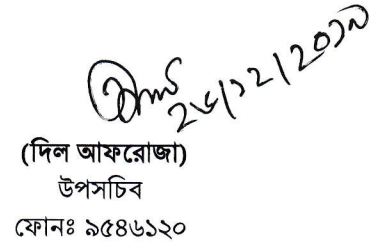 ২৬/১২/২০১৯
(দিল আফরোজা)
উপসচিব
ফোনঃ ৯৫৪৬১২০